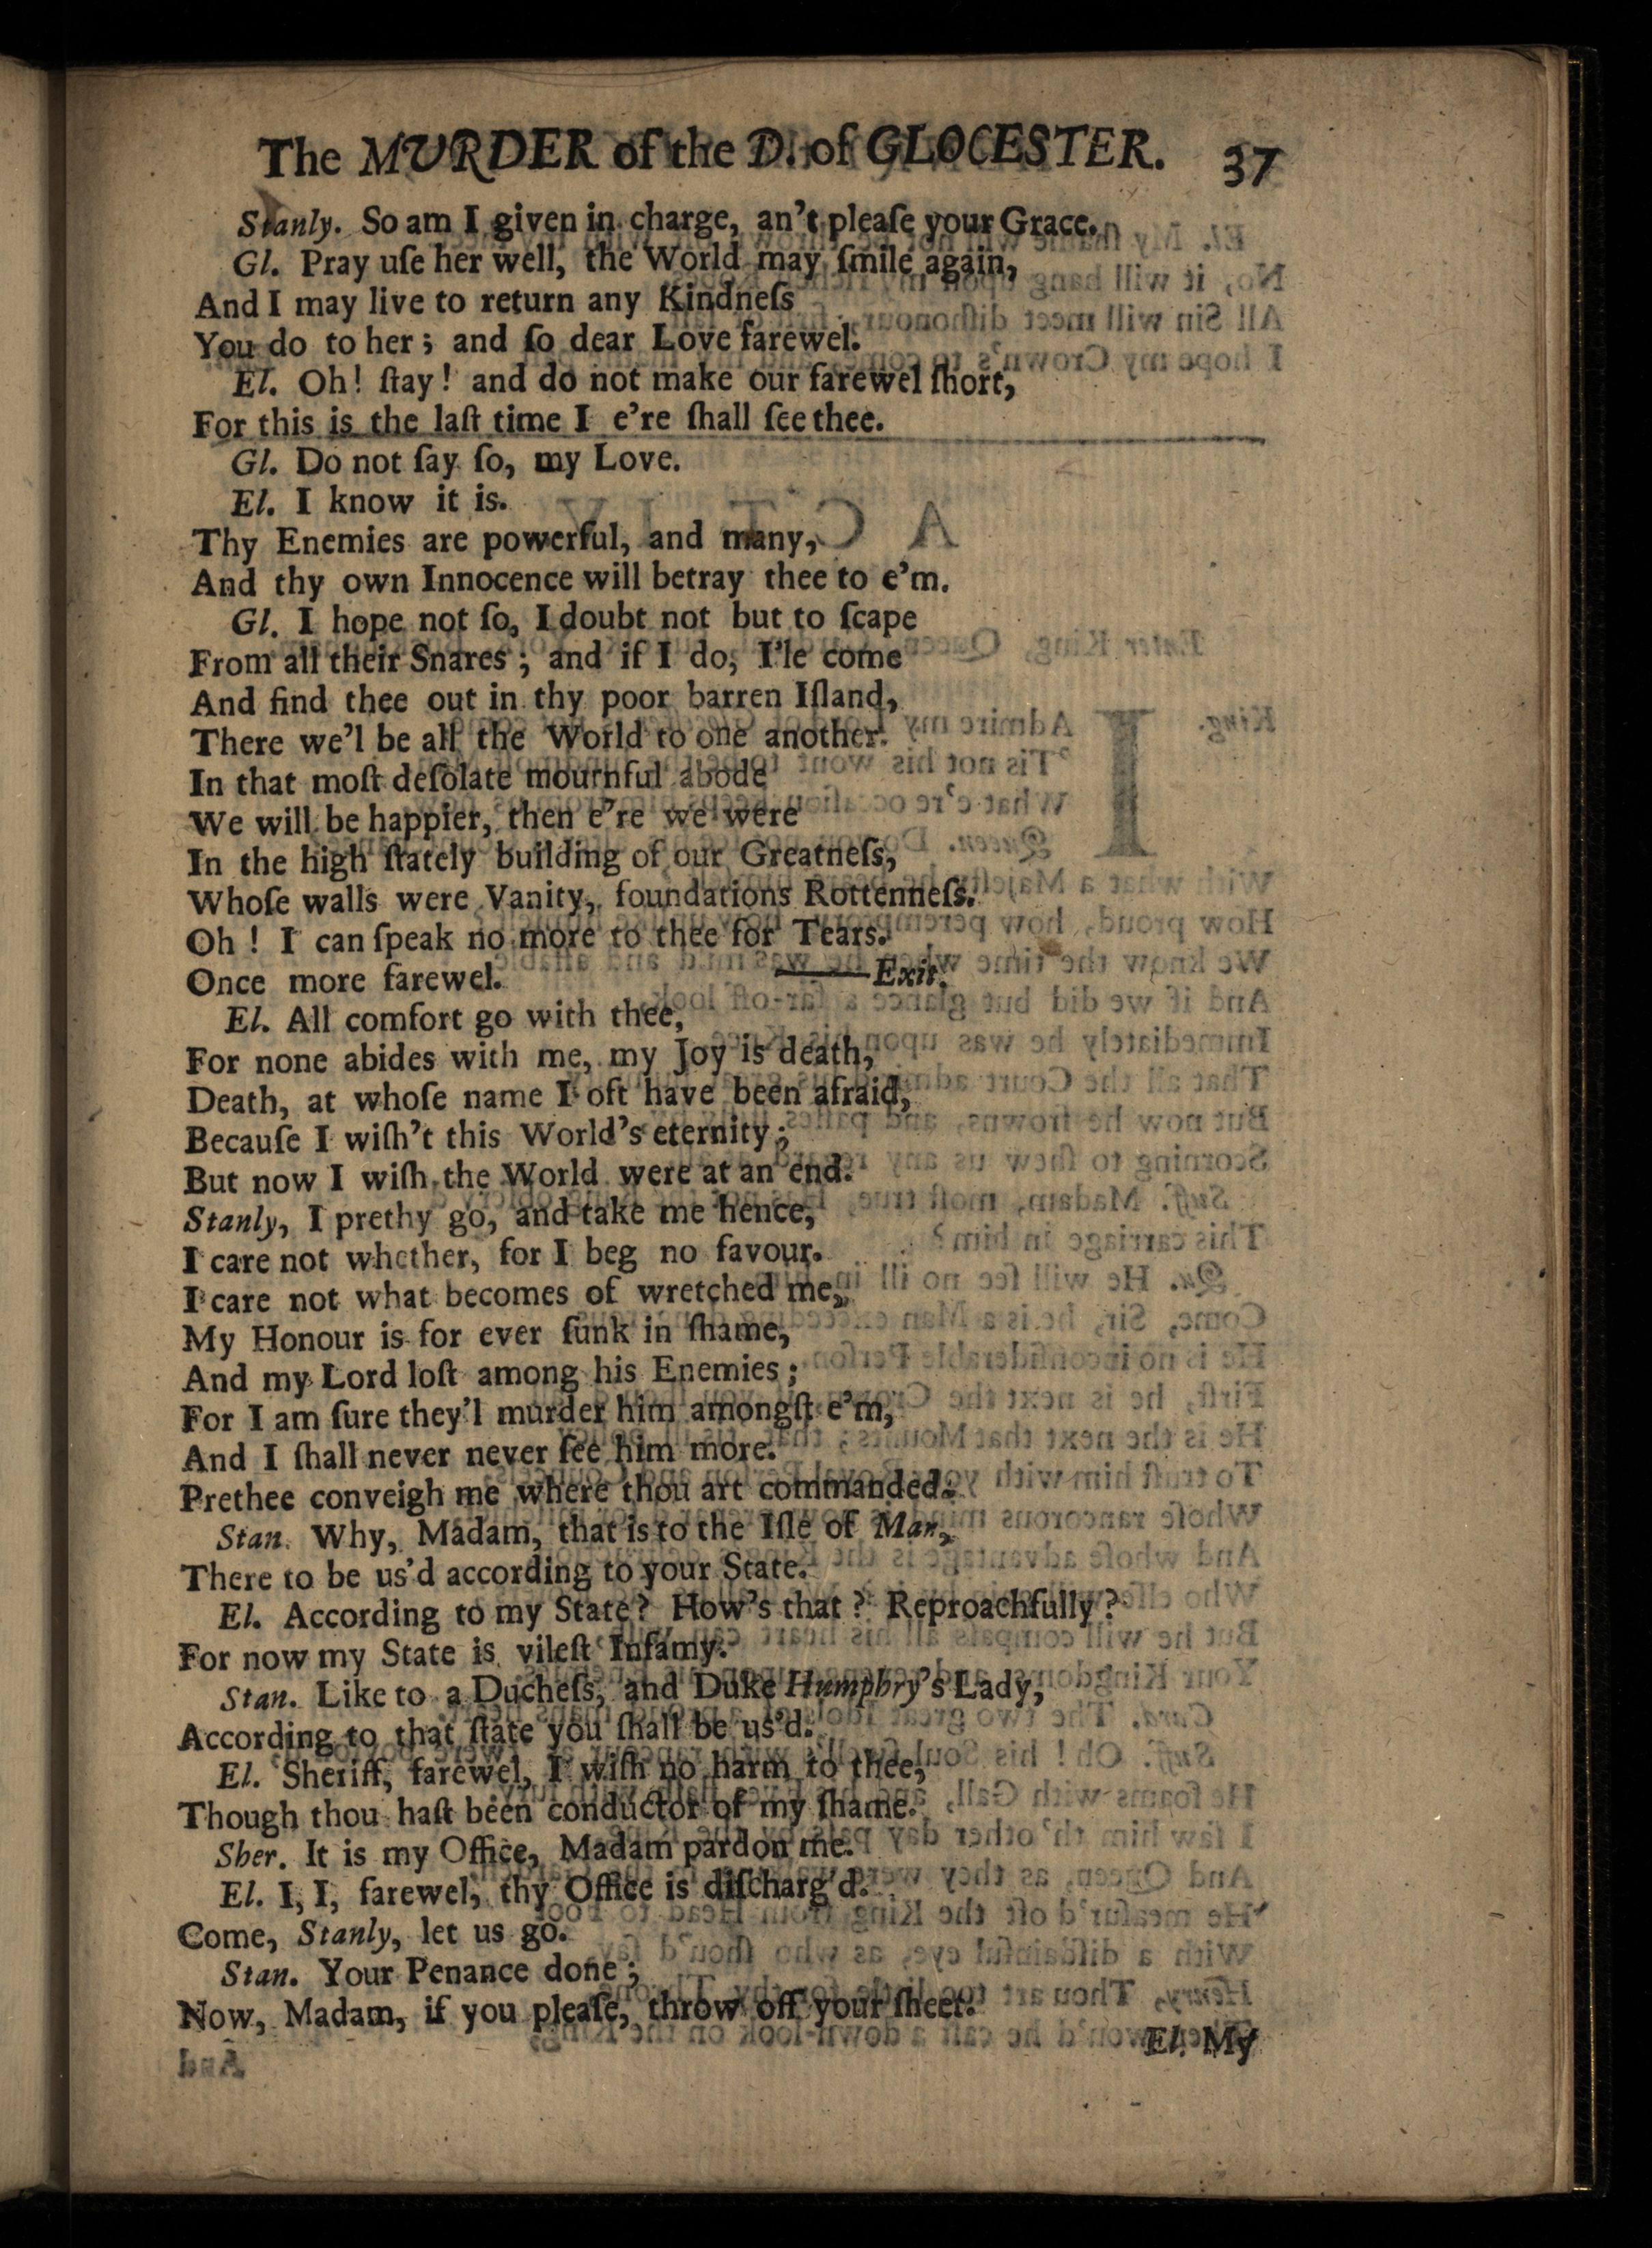 The MURDER of the D. of GLOCESTER. 37
Stanly. So am I given in charge, an't pleaſe your Grace.
Gl. Pray uſe her well, the World may ſmile again,
And I may live to return any Kindneſs
You do to her; and ſo dear Love farewel.
El. Oh! ſtay! and do not make our farewel ſhort,
For this is the laſt time I e're ſhall ſee thee.
Gl. Do not ſay ſo, my Love.
El. I know it is.
Thy Enemies are powerful, and many,
And thy own Innocence will betray thee to e'm.
Gl. I hope not ſo, I doubt not but to ſcape
From all their Snares; and if I do, I'le come
And find thee out in thy poor barren Iſland,
There we'l be all the World to one another.
In that moſt deſolate mournful abode
We will be happier, then e're we were
In the high ſtately building of our Greatneſs,
Whoſe walls were Vanity, foundations Rottenneſs.
Oh! I can ſpeak no more to thee for Tears.
Once more farewel. ——Exit.
El. All comfort go with thee,
For none abides with me, my Joy is death,
Death, at whoſe name I oft have been afraid,
Becauſe I wiſh't this World's eternity;
But now I wiſh the World were at an end.
Stanly, I prethy go, and take me hence,
I care not whether, for I beg no favour.
I care not what becomes of wretched me,
My Honour is for ever ſunk in ſhame,
And my Lord loſt among his Enemies;
For I am ſure they'l murder him amongſt e'm,
And I ſhall never never ſee him more.
Prethee conveigh me where thou art commanded.
Stan. Why, Madam, that is to the Iſle of Man,
There to be us'd according to your State.
El. According to my State? How's that? Reproachfully?
For now my State is vileſt Infamy.
Stan. Like to a Ducheſs, and Duke Humphry's Lady,
According to that ſtate you ſhall be us'd.
El. Sheriff, farewel, I wiſh no harm to thee,
Though thou haſt been conductor of my ſhame.
Sher. It is my Office, Madam pardon me.
El. I, I, farewel, thy Office is diſcharg'd.
Come, Stanly, let us go.
Stan. Your Penance done;
Now, Madam, if you pleaſe, throw off your ſheet.
El. My